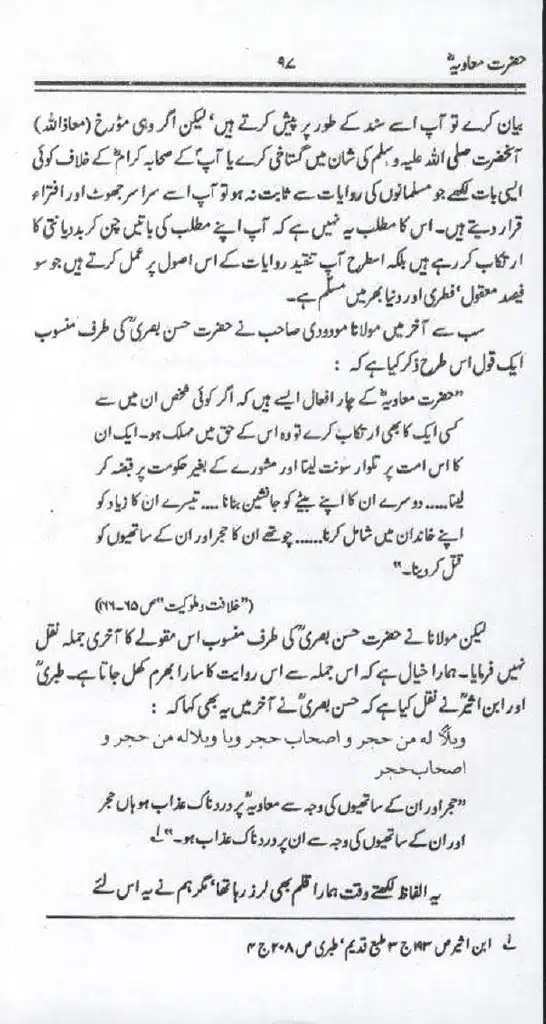 حضرت معاویہؓ ۹۷
بیان کرے تو آپ اسے سند کے طور پر پیش کرتے ہیں، لیکن اگر وہی مؤرخ (معاذاللہ)
آنحضرت صلی اللہ علیہ وسلم کی شان میں گستاخی کرے یا آپؐ کے صحابہ کرامؓ کے خلاف کوئی
ایسی بات لکھے جو مسلمانوں کی روایات سے ثابت نہ ہو تو آپ اسے سراسر جھوٹ اور افتراء
قرار دیتے ہیں۔ اس کا مطلب یہ نہیں ہے کہ آپ اپنے مطلب کی باتیں چن کر بددیانتی کا
ارتکاب کر رہے ہیں بلکہ اسطرح آپ تنقید روایات کے اس اصول پر عمل کرتے ہیں جو سو
فیصد معقول، فطری اور دنیا بھر میں مسلّم ہے۔
سب سے آخر میں مولانا مودودی صاحب نے حضرت حسن بصریؒ کی طرف منسوب
ایک قول اس طرح ذکر کیا ہے کہ :
"حضرت معاویہؓ کے چار افعال ایسے ہیں کہ اگر کوئی شخص ان میں سے
کسی ایک کا بھی ارتکاب کرے تو وہ اس کے حق میں مہلک ہو۔ ایک ان
کا اس امت پر تلوار سونت لینا اور مشورے کے بغیر حکومت پر قبضہ کر
لینا..... دوسرے ان کا اپنے بیٹے کو جانشین بنانا .... تیسرے ان کا زیاد کو
اپنے خاندان میں شامل کرنا...... چوتھے ان کا حجر اور ان کے ساتھیوں کو
قتل کر دینا۔"
("خلافت و ملوکیت" ص ۶۵-۱۶۶)
لیکن مولانا نے حضرت حسن بصریؒ کی طرف منسوب اس مقولے کا آخری جملہ نقل
نہیں فرمایا۔ ہمارا خیال ہے کہ اس جملہ سے اس روایت کا سارا بھرم کھل جاتا ہے۔ طبریؒ
اور ابن اثیرؒ نے نقل کیا ہے کہ حسن بصریؒ نے آخر میں یہ بھی کہا کہ :
ویلاً له من حجر و اصحاب حجر ویا ویلاله من حجر و
اصحاب حجر
"حجر اور ان کے ساتھیوں کی وجہ سے معاویہؓ پر دردناک عذاب ہو ہاں حجر
اور ان کے ساتھیوں کی وجہ سے ان پر دردناک عذاب ہو۔" ۱؎
یہ الفاظ لکھتے وقت ہمارا قلم بھی لرز رہا تھا، مگر ہم نے یہ اس لئے
۱؎ ابن اثیر ص ۱۹۳ ج ۳ طبع قدیم، طبری ص ۲۰۸ ج ۴